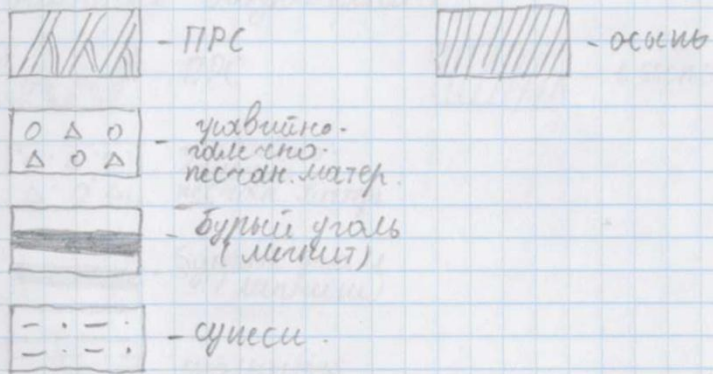 - ПРС
- осыпь
- гравийно-
галечно-
песчан. матер.
- бурый уголь
(лигнит)
- супеси.